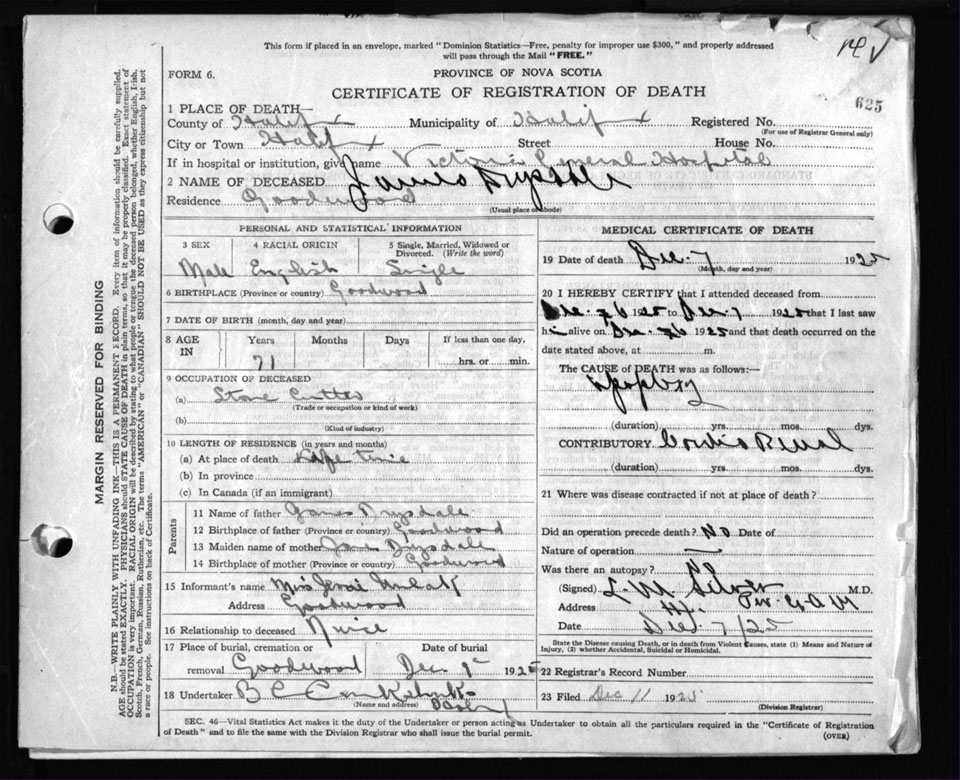 This form if placed in an envelope, marked "Dominion Statistics—Free, penalty for improper use $300," and properly addressed
will pass through the Mail "FREE."
FORM 6.
PROVINCE OF NOVA SCOTIA
CERTIFICATE OF REGISTRATION OF DEATH
625
1 PLACE OF DEATH—
County of Halifax Municipality of Halifax Registered No.
(For use of Registrar General only)
City or Town Halifax Street House No.
If in hospital or institution, give name Victoria General Hospital
2 NAME OF DECEASED James Drysdale
Residence Goodwood
(Usual place of abode)
PERSONAL AND STATISTICAL INFORMATION
3 SEX 4 RACIAL ORIGIN 5 Single, Married, Widowed or
Divorced. (Write the word)
Male English Single
6 BIRTHPLACE (Province or country) Goodwood
7 DATE OF BIRTH (month, day and year)
8 AGE IN Years Months Days If less than one day,
71 hrs. or min.
9 OCCUPATION OF DECEASED
(a) Stone Cutter
(Trade or occupation or kind of work)
(b)
(Kind of industry)
10 LENGTH OF RESIDENCE (in years and months)
(a) At place of death Life time
(b) In province
(c) In Canada (if an immigrant)
Parents
11 Name of father James Drysdale
12 Birthplace of father (Province or country) Goodwood
13 Maiden name of mother Drysdale
14 Birthplace of mother (Province or country) Goodwood
15 Informant's name Mrs
Address Goodwood
16 Relationship to deceased Niece
17 Place of burial, cremation or Date of burial
removal Goodwood Dec 9 1925
18 Undertaker
(Name and address)
MEDICAL CERTIFICATE OF DEATH
19 Date of death Dec. 7 1925
(Month, day and year)
20 I HEREBY CERTIFY that I attended deceased from
1925 to Dec. 7 1925 that I last saw
him alive on 1925 and that death occurred on the
date stated above, at m.
The CAUSE of DEATH was as follows:—
Apoplexy
(duration) yrs. mos. dys.
CONTRIBUTORY Cardio Renal
(duration) yrs. mos. dys.
21 Where was disease contracted if not at place of death?
Did an operation precede death? NO Date of
Nature of operation —
Was there an autopsy? no
(Signed) L. M. Silver M.D.
Address
Date Dec. 7/25
State the Disease causing Death, or in death from Violent Causes, state (1) Means and Nature of
Injury, (2) whether Accidental, Suicidal or Homicidal.
22 Registrar's Record Number
23 Filed Dec 11 1925
(Division Registrar)
SEC. 46—Vital Statistics Act makes it the duty of the Undertaker or person acting as Undertaker to obtain all the particulars required in the "Certificate of Registration
of Death" and to file the same with the Division Registrar who shall issue the burial permit.
(OVER)
MARGIN RESERVED FOR BINDING
N.B.—WRITE PLAINLY WITH UNFADING INK—THIS IS A PERMANENT RECORD. Every item of information should be carefully supplied.
AGE should be stated EXACTLY. PHYSICIANS should STATE CAUSE OF DEATH in plain terms, so that it may be properly classified. Exact statement of
OCCUPATION is very important. RACIAL ORIGIN will be described by stating to what people or tongue the deceased person belonged, whether English, Irish,
Scotch, French, German, Russian, Ruthenian, etc. The terms "AMERICAN" or "CANADIAN" SHOULD NOT BE USED as they express citizenship but not
a race or people. See instructions on back of Certificate.